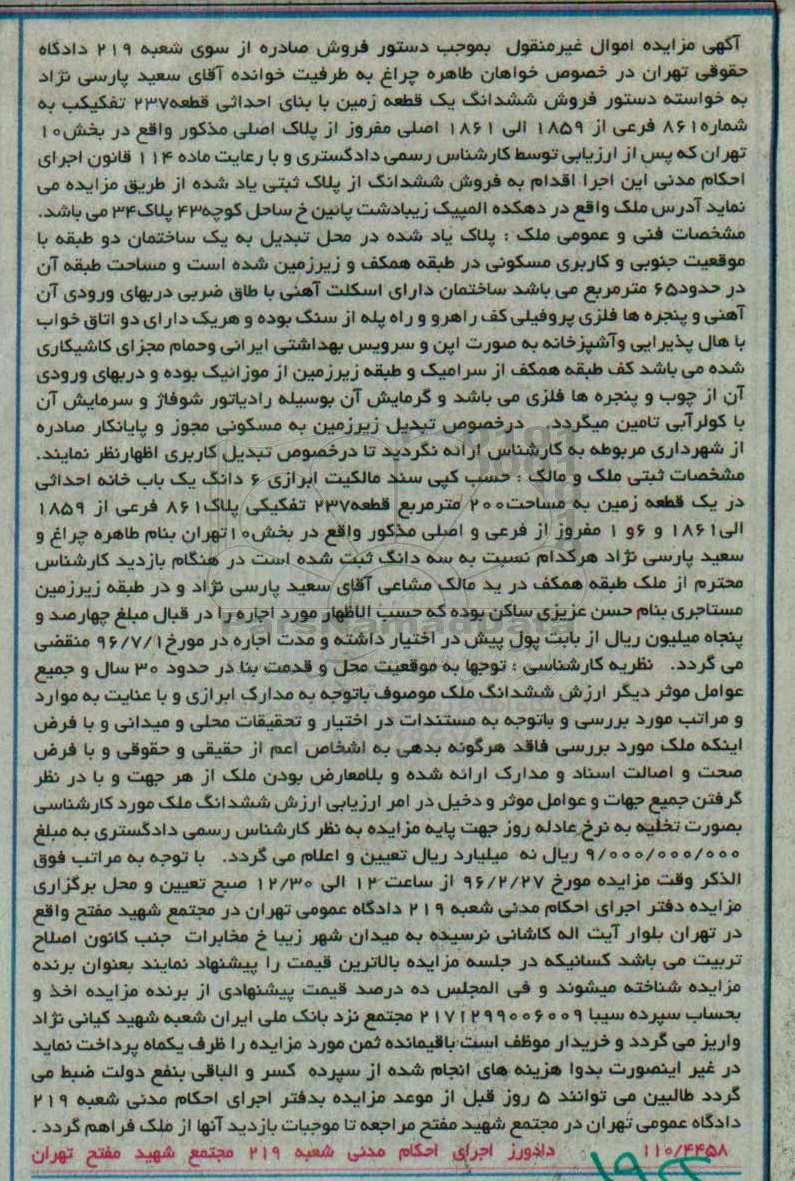 آگهی مزایده اموال غیرمنقول بموجب دستور فروش صادره از سوی شعبه ۲۱۹ دادگاه
حقوقی تهران در خصوص خواهان طاهره چراغ به طرفیت خوانده آقای سعید پارسی نژاد
به خواسته دستور فروش ششدانگ یک قطعه زمین با بنای احداثی قطعه۲۳۷ تفکیکب به
شماره۸۶۱ فرعی از ۱۸۵۹ الی ۱۸۶۱ اصلی مفروز از پلاک اصلی مذکور واقع در بخش۱۰
تهران که پس از ارزیابی توسط کارشناس رسمی دادگستری و با رعایت ماده ۱۱۴ قانون اجرای
احکام مدنی این اجرا اقدام به فروش ششدانگ از پلاک ثبتی یاد شده از طریق مزایده می
نماید آدرس ملک واقع در دهکده المپیک زیبادشت پائین خ ساحل کوچه۴۳ پلاک۳۴ می باشد.
مشخصات فنی و عمومی ملک : پلاک یاد شده در محل تبدیل به یک ساختمان دو طبقه با
موقعیت جنوبی و کاربری مسکونی در طبقه همکف و زیرزمین شده است و مساحت طبقه آن
در حدود۶۵ مترمربع می باشد ساختمان دارای اسکلت آهنی با طاق ضربی دربهای ورودی آن
آهنی و پنجره ها فلزی پروفیلی کف راهرو و راه پله از سنگ بوده و هریک دارای دو اتاق خواب
با هال پذیرایی وآشپزخانه به صورت اپن و سرویس بهداشتی ایرانی وحمام مجزای کاشیکاری
شده می باشد کف طبقه همکف از سرامیک و طبقه زیرزمین از موزائیک بوده و دربهای ورودی
آن از چوب و پنجره ها فلزی می باشد و گرمایش آن بوسیله رادیاتور شوفاژ و سرمایش آن
با کولرآبی تامین میگردد. درخصوص تبدیل زیرزمین به مسکونی مجوز و پایانکار صادره
از شهرداری مربوطه به کارشناس ارائه نگردید تا درخصوص تبدیل کاربری اظهارنظر نمایند.
مشخصات ثبتی ملک و مالک : حسب کپی سند مالکیت ابرازی ۶ دانگ یک باب خانه احداثی
در یک قطعه زمین به مساحت۲۰۰ مترمربع قطعه۲۳۷ تفکیکی پلاک۸۶۱ فرعی از ۱۸۵۹
الی۱۸۶۱ و ۶و ۱ مفروز از فرعی و اصلی مذکور واقع در بخش۱۰تهران بنام طاهره چراغ و
سعید پارسی نژاد هرکدام نسبت به سه دانگ ثبت شده است در هنگام بازدید کارشناس
محترم از ملک طبقه همکف در ید مالک مشاعی آقای سعید پارسی نژاد و در طبقه زیرزمین
مستاجری بنام حسن عزیزی ساکن بوده که حسب الاظهار مورد اجاره را در قبال مبلغ چهارصد و
پنجاه میلیون ریال از بابت پول پیش در اختیار داشته و مدت اجاره در مورخ۹۶/۷/۱ منقضی
می گردد. نظریه کارشناسی : توجها به موقعیت محل و قدمت بنا در حدود ۳۰ سال و جمیع
عوامل موثر دیگر ارزش ششدانگ ملک موصوف باتوجه به مدارک ابرازی و با عنایت به موارد
و مراتب مورد بررسی و باتوجه به مستندات در اختیار و تحقیقات محلی و میدانی و با فرض
اینکه ملک مورد بررسی فاقد هرگونه بدهی به اشخاص اعم از حقیقی و حقوقی و با فرض
صحت و اصالت اسناد و مدارک ارائه شده و بلامعارض بودن ملک از هر جهت و با در نظر
گرفتن جمیع جهات و عوامل موثر و دخیل در امر ارزیابی ارزش ششدانگ ملک مورد کارشناسی
بصورت تخلیه به نرخ عادله روز جهت پایه مزایده به نظر کارشناس رسمی دادگستری به مبلغ
۹/۰۰۰/۰۰۰/۰۰۰ ریال نه میلیارد ریال تعیین و اعلام می گردد. با توجه به مراتب فوق
الذکر وقت مزایده مورخ ۹۶/۲/۲۷ از ساعت ۱۲ الی ۱۲/۳۰ صبح تعیین و محل برگزاری
مزایده دفتر اجرای احکام مدنی شعبه ۲۱۹ دادگاه عمومی تهران در مجتمع شهید مفتح واقع
در تهران بلوار آیت اله کاشانی نرسیده به میدان شهر زیبا خ مخابرات جنب کانون اصلاح
تربیت می باشد کسانیکه در جلسه مزایده بالاترین قیمت را پیشنهاد نمایند بعنوان برنده
مزایده شناخته میشوند و فی المجلس ده درصد قیمت پیشنهادی از برنده مزایده اخذ و
بحساب سپرده سیبا ۲۱۷۱۲۹۹۰۰۶۰۰۹ مجتمع نزد بانک ملی ایران شعبه شهید کیانی نژاد
واریز می گردد و خریدار موظف است باقیمانده ثمن مورد مزایده را ظرف یکماه پرداخت نماید
در غیر اینصورت بدوا هزینه های انجام شده از سپرده کسر و الباقی بنفع دولت ضبط می
گردد طالبین می توانند ۵ روز قبل از موعد مزایده بدفتر اجرای احکام مدنی شعبه ۲۱۹
دادگاه عمومی تهران در مجتمع شهید مفتح مراجعه تا موجبات بازدید آنها از ملک فراهم گردد .
۱۱۰/۴۴۵۸ دادورز اجرای احکام مدنی شعبه ۲۱۹ مجتمع شهید مفتح تهران